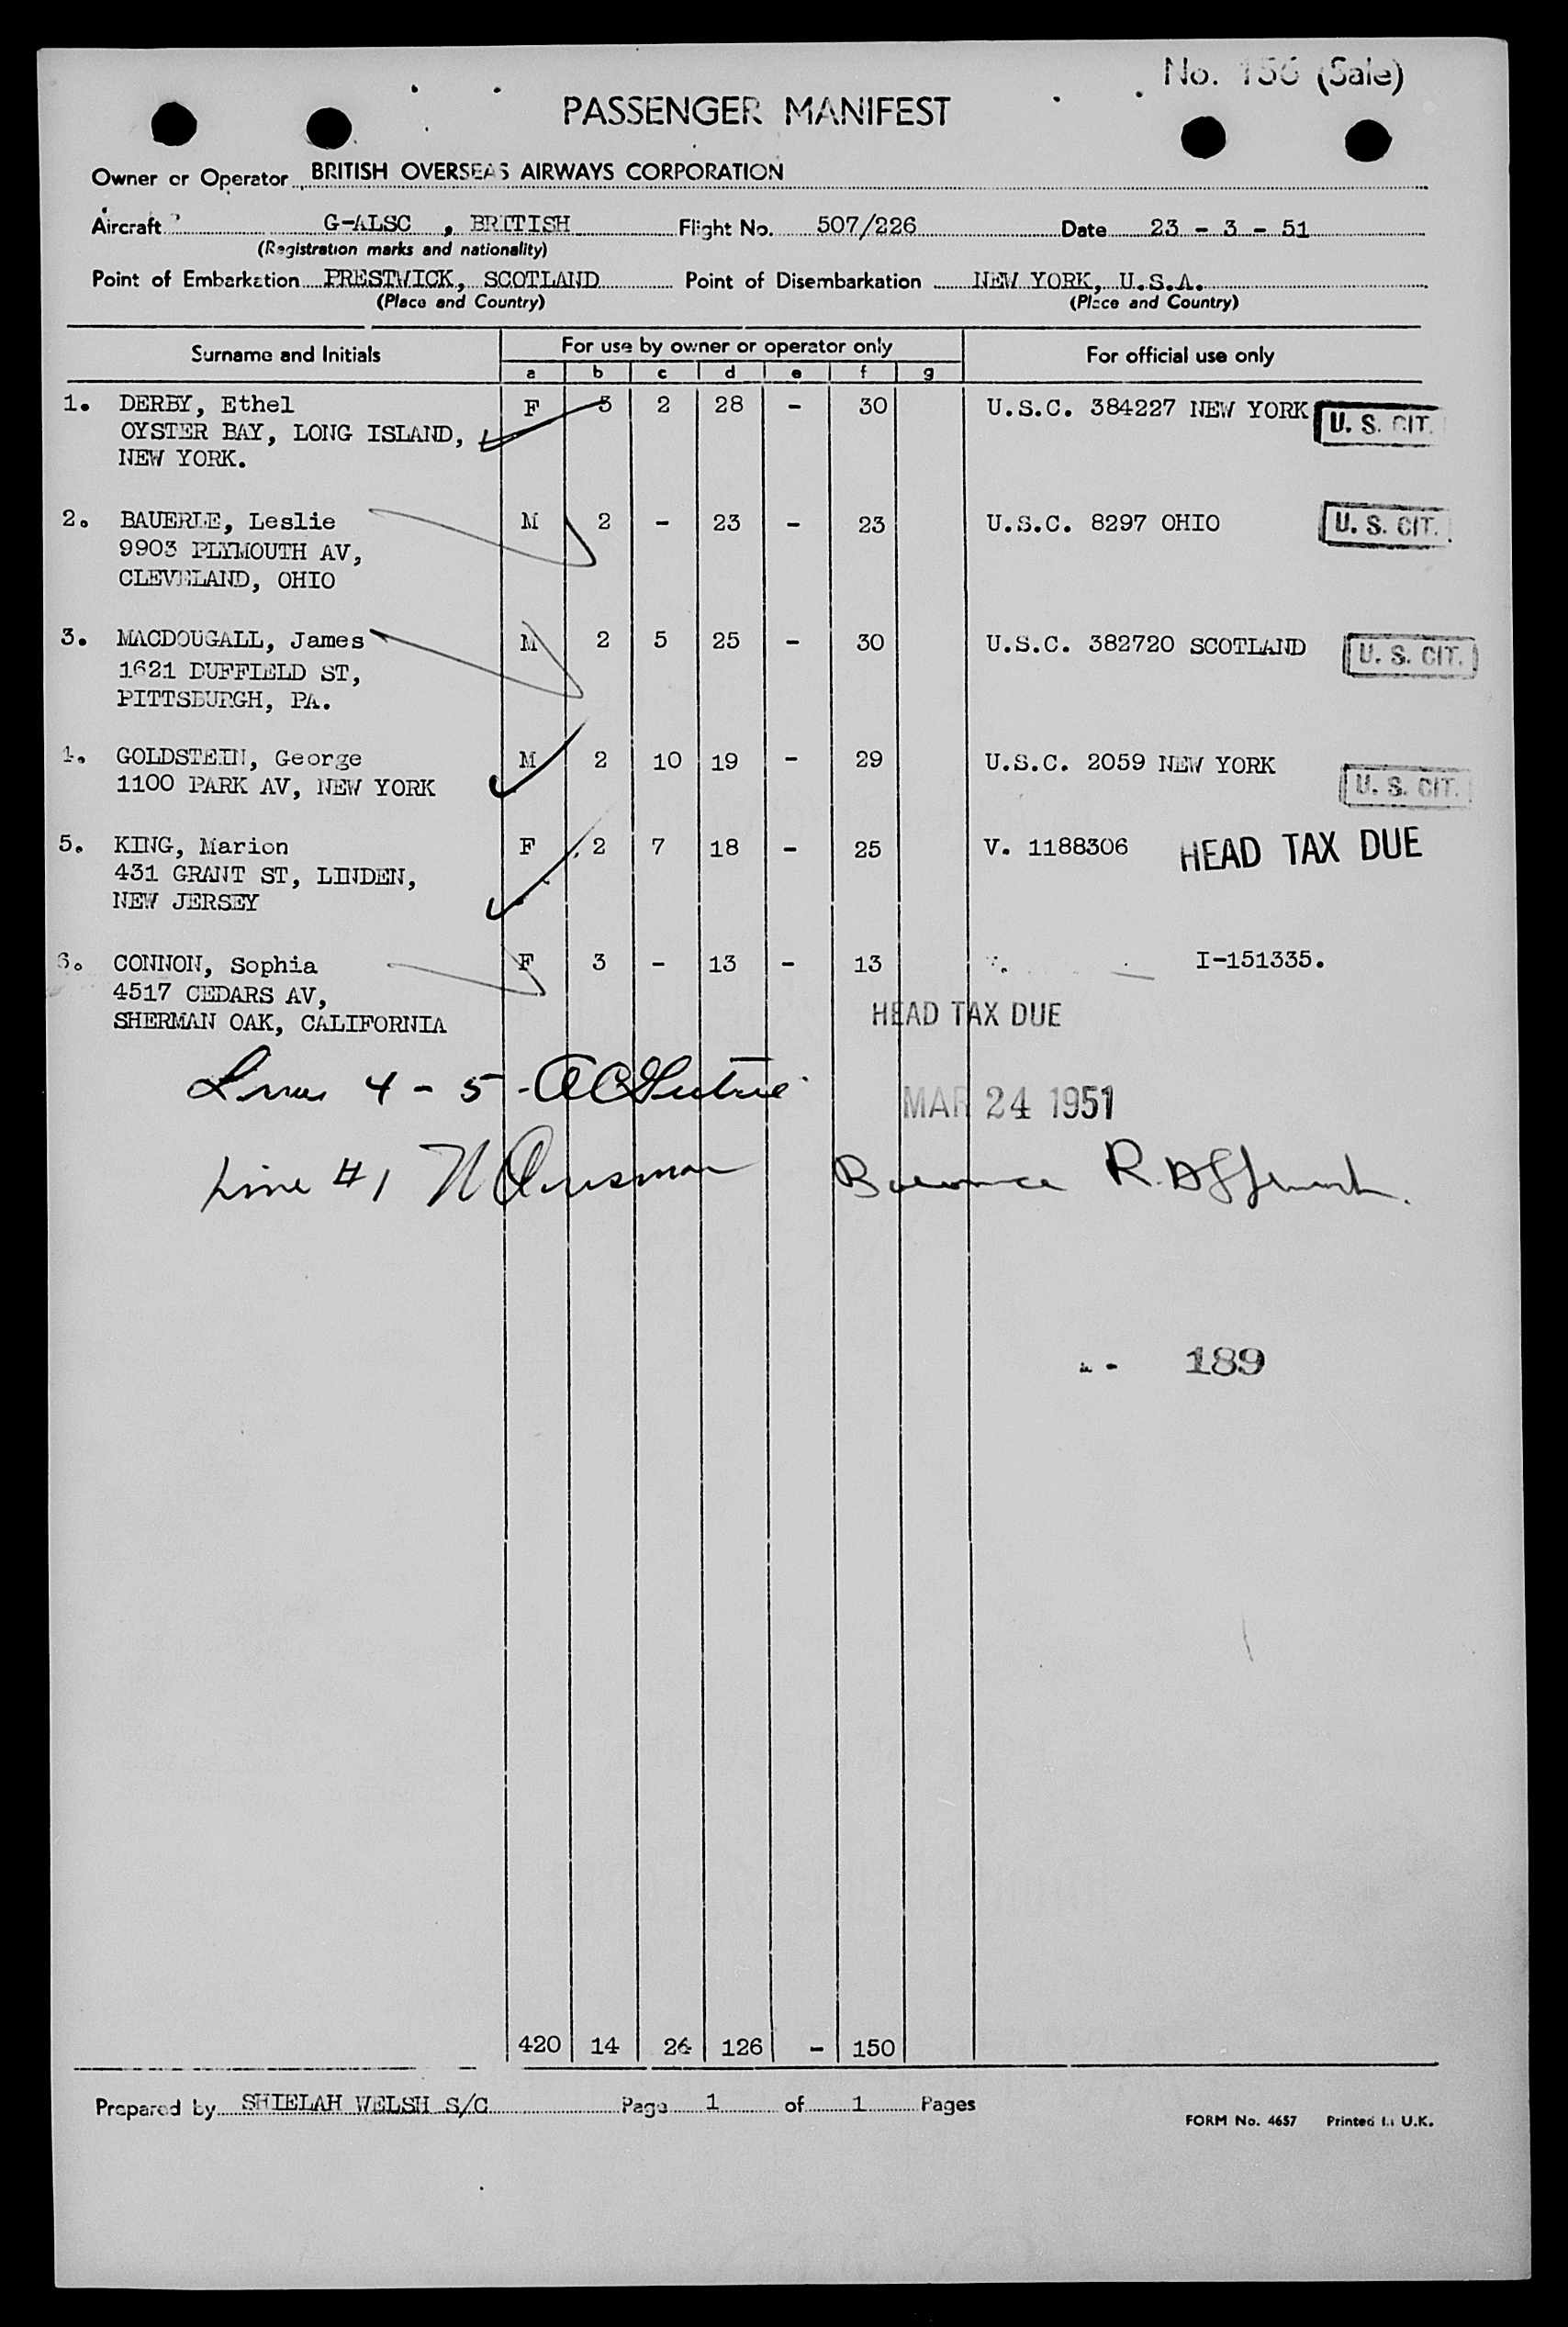 No. 156 (Sale)
PASSENGER MANIFEST
Owner or Operator BRITISH OVERSEAS AIRWAYS CORPORATION
Aircraft G-ALSC , BRITISH Flight No. 507/226 Date 23 - 3 - 51
(Registration marks and nationality)
Point of Embarkation PRESTWICK, SCOTLAND Point of Disembarkation NEW YORK, U.S.A.
(Place and Country) (Place and Country)
Surname and Initials For use by owner or operator only For official use only
a b c d e f g
1. DERBY, Ethel F 3 2 28 - 30 U.S.C. 384227 NEW YORK U. S. CIT.
OYSTER BAY, LONG ISLAND,
NEW YORK.
2. BAUERLE, Leslie M 2 - 23 - 23 U.S.C. 8297 OHIO U. S. CIT.
9903 PLYMOUTH AV,
CLEVELAND, OHIO
3. MACDOUGALL, James M 2 5 25 - 30 U.S.C. 382720 SCOTLAND U. S. CIT.
1621 DUFFIELD ST,
PITTSBURGH, PA.
4. GOLDSTEIN, George M 2 10 19 - 29 U.S.C. 2059 NEW YORK U. S. CIT.
1100 PARK AV, NEW YORK
5. KING, Marion F 2 7 18 - 25 V. 1188306 HEAD TAX DUE
431 GRANT ST, LINDEN,
NEW JERSEY
6. CONNON, Sophia F 3 - 13 - 13 V. I-151335.
4517 CEDARS AV,
SHERMAN OAK, CALIFORNIA
HEAD TAX DUE
Lines 4 - 5 -
MAR 24 1951
Line #1 Balance
189
420 14 26 126 - 150
Prepared by SHIELAH WELSH S/C Page 1 of 1 Pages
FORM No. 4657 Printed in U.K.